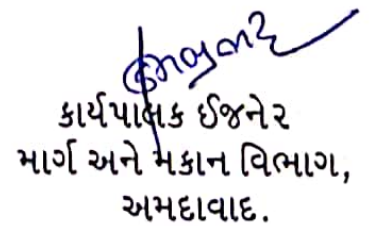 કાર્યપાલક ઈજનેર
માર્ગ અને મકાન વિભાગ,
અમદાવાદ.